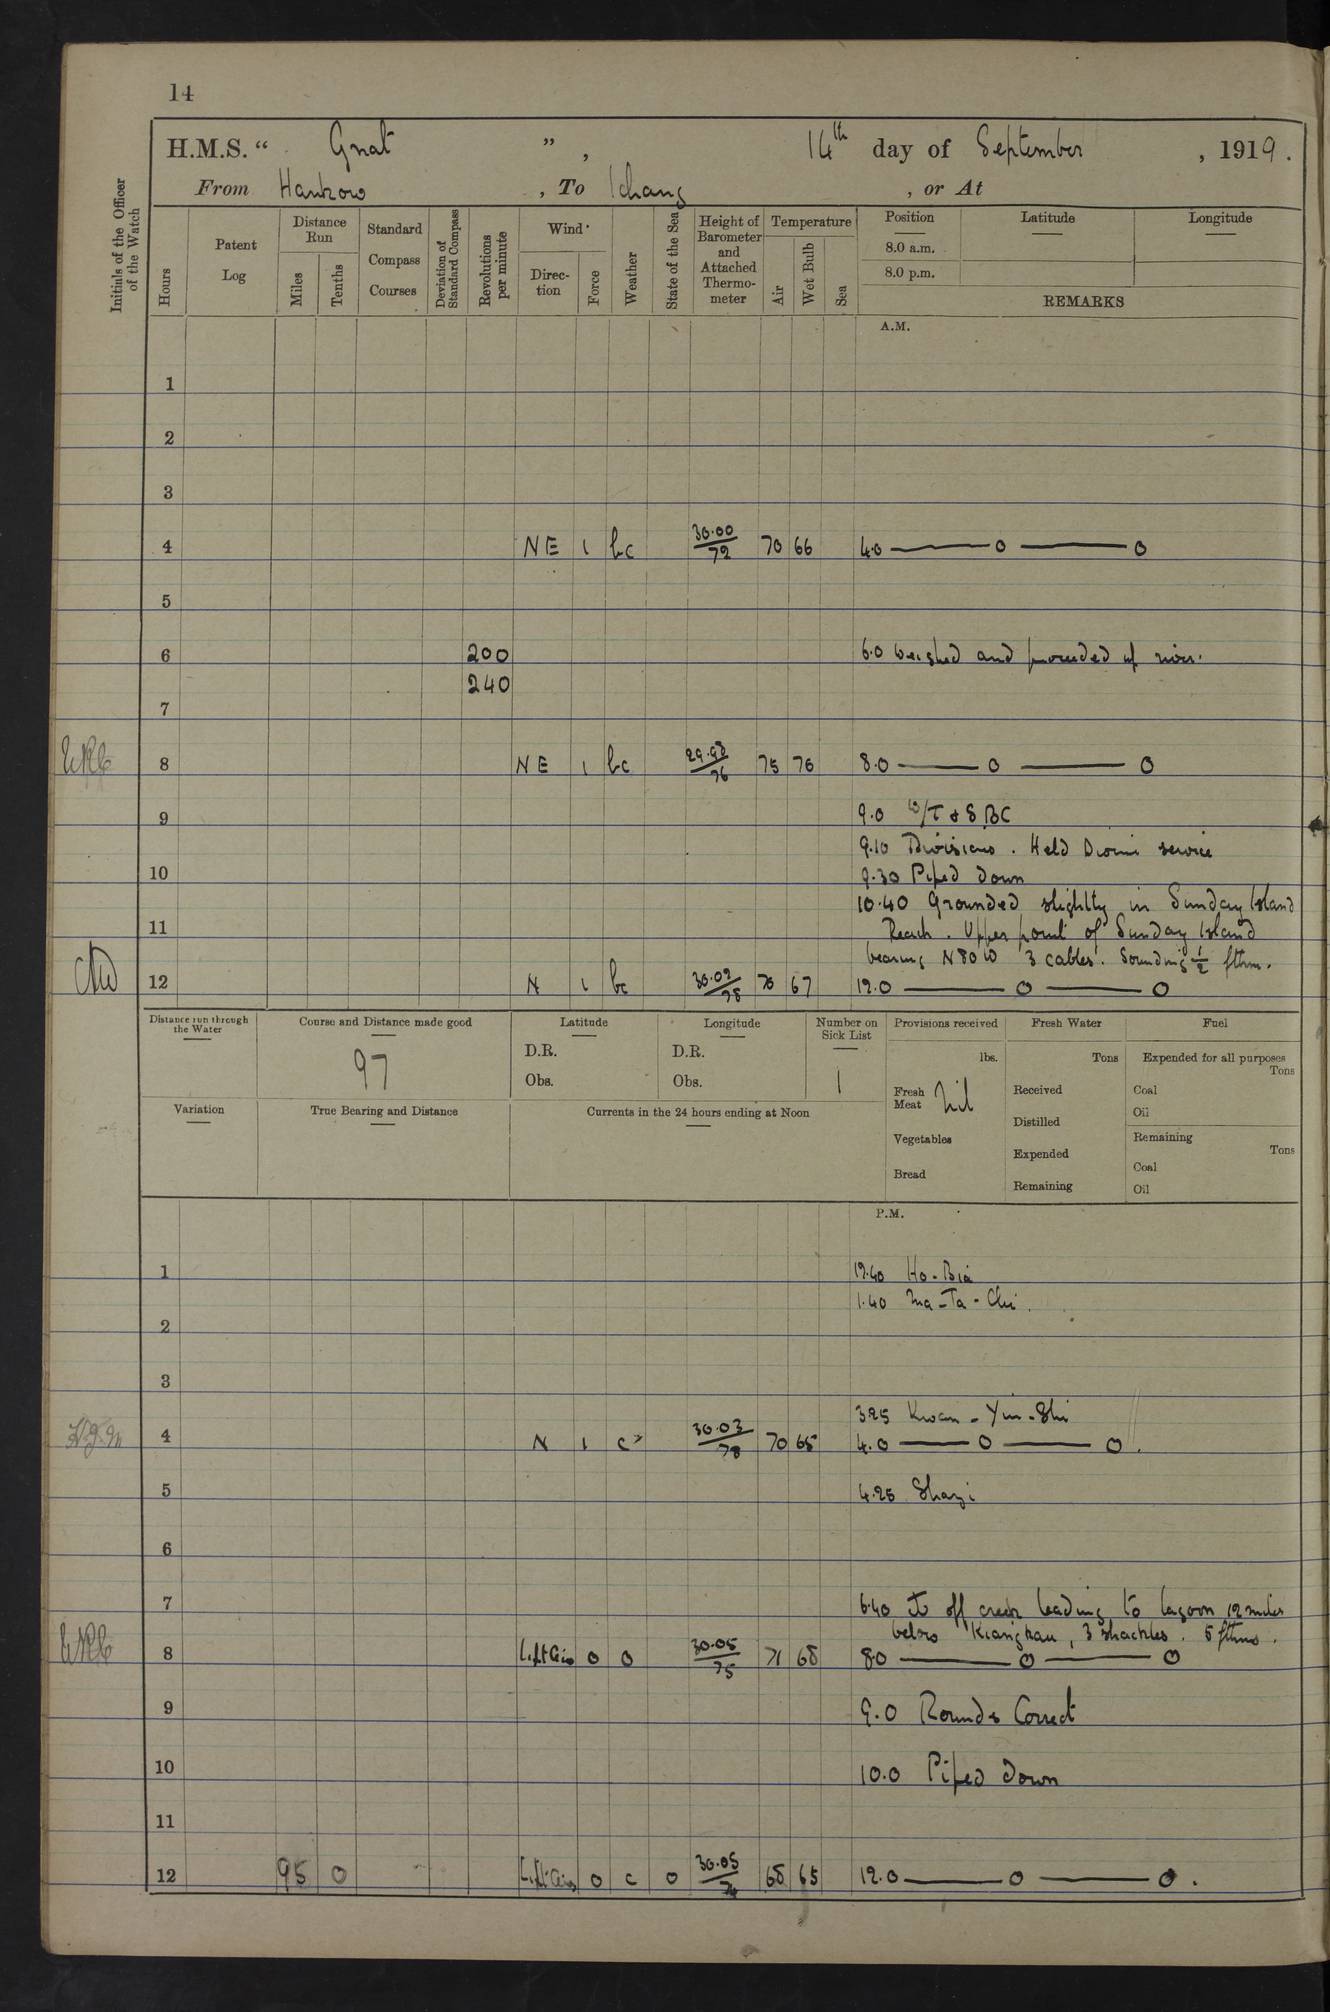 14
H.M.S. " Gnat " , 14th day of September , 1919.
From Hankow , To Ichang , or At
Initials of the Officer of the Watch
Hours
Patent Log
Distance Run
Miles
Tenths
Standard Compass Courses
Deviation of Standard Compass
Revolutions per minute
Wind
Direc-tion
Force
Weather
State of the Sea
Height of Barometer and Attached Thermo-meter
Temperature
Air
Wet Bulb
Sea
Position
8.0 a.m.
8.0 p.m.
Latitude
Longitude
REMARKS
A.M.
1
2
3
4 NE 1 bc 30.00/72 70 66 4.0 —— o —— o
5
6 200 6.0 Weighed and proceeded up river.
240
7
8 NE 1 bc 29.98/76 75 76 8.0 —— o —— o
9 9.0 W/T & S.B.C
9.10 Divisions. Held Divine service
10 9.30 Piped down
10.40 Grounded slightly in Sunday Island
11 Reach. Upper point of Sunday Island
bearing N80W 3 cables. Sounding ½ fthm.
12 N 1 bc 30.02/78 70 67 12.0 —— o —— o
Distance run through the Water
Course and Distance made good
97
Latitude
D.R.
Obs.
Longitude
D.R.
Obs.
Number on Sick List
1
Provisions received
lbs.
Fresh Meat Nil
Vegetables
Bread
Fresh Water
Tons
Received
Distilled
Expended
Remaining
Fuel
Expended for all purposes
Tons
Coal
Oil
Remaining
Tons
Coal
Oil
Variation
True Bearing and Distance
Currents in the 24 hours ending at Noon
P.M.
1 12.40 Ho-Bia
1.40 Ma-Ta-Chi.
2
3
3.25 Kwan-Yin-Shi
4 N 1 c 30.03/78 70 65 4.0 —— o —— o.
5 4.25 Shazi
6
7 6.40 to off creek leading to lagoon 12 miles
below Kiangkau, 3 shackles. 5 fthms.
8 Light Airs 0 0 30.05/75 71 68 8.0 —— o —— o
9 9.0 Rounds Correct
10 10.0 Piped down
11
12 95 0 Lt Airs 0 c 0 30.05/74 68 65 12.0 —— o —— o.